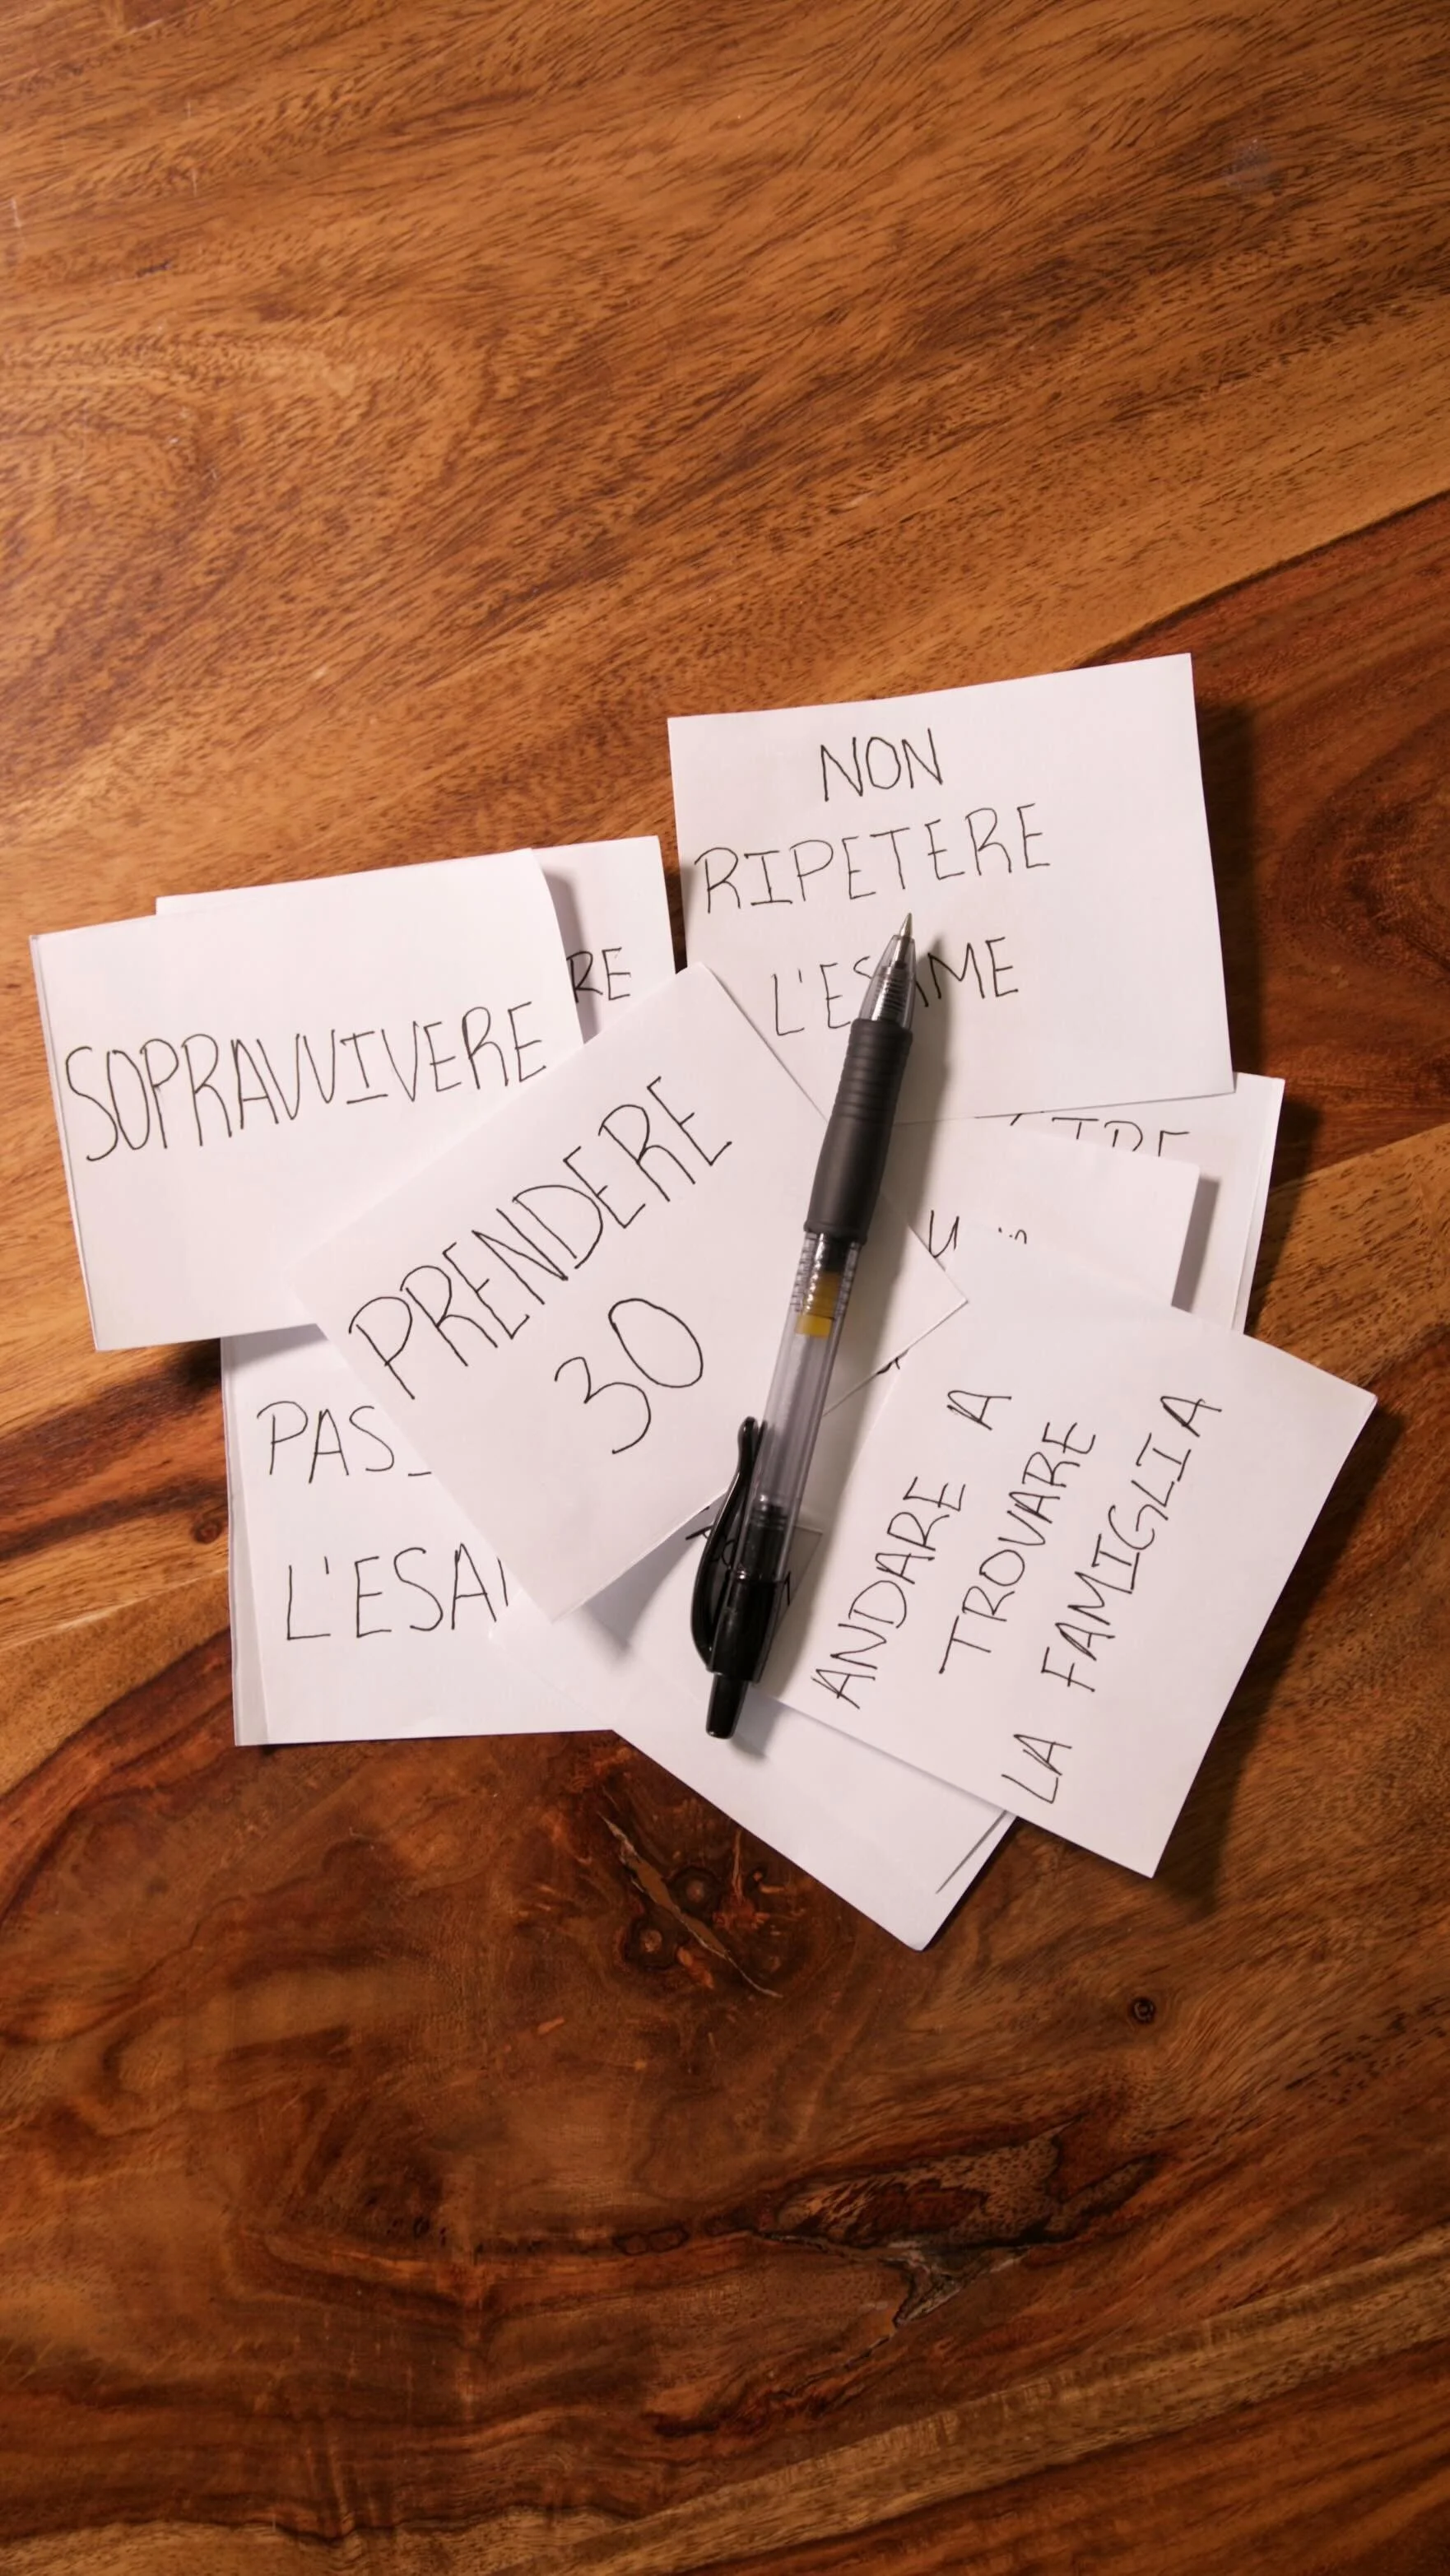 NON
RIPETERE
L'ESAME
RE
SOPRAVVIVERE
PRENDERE
30
PAS
L'ESA
ANDARE A
TROVARE
LA FAMIGLIA